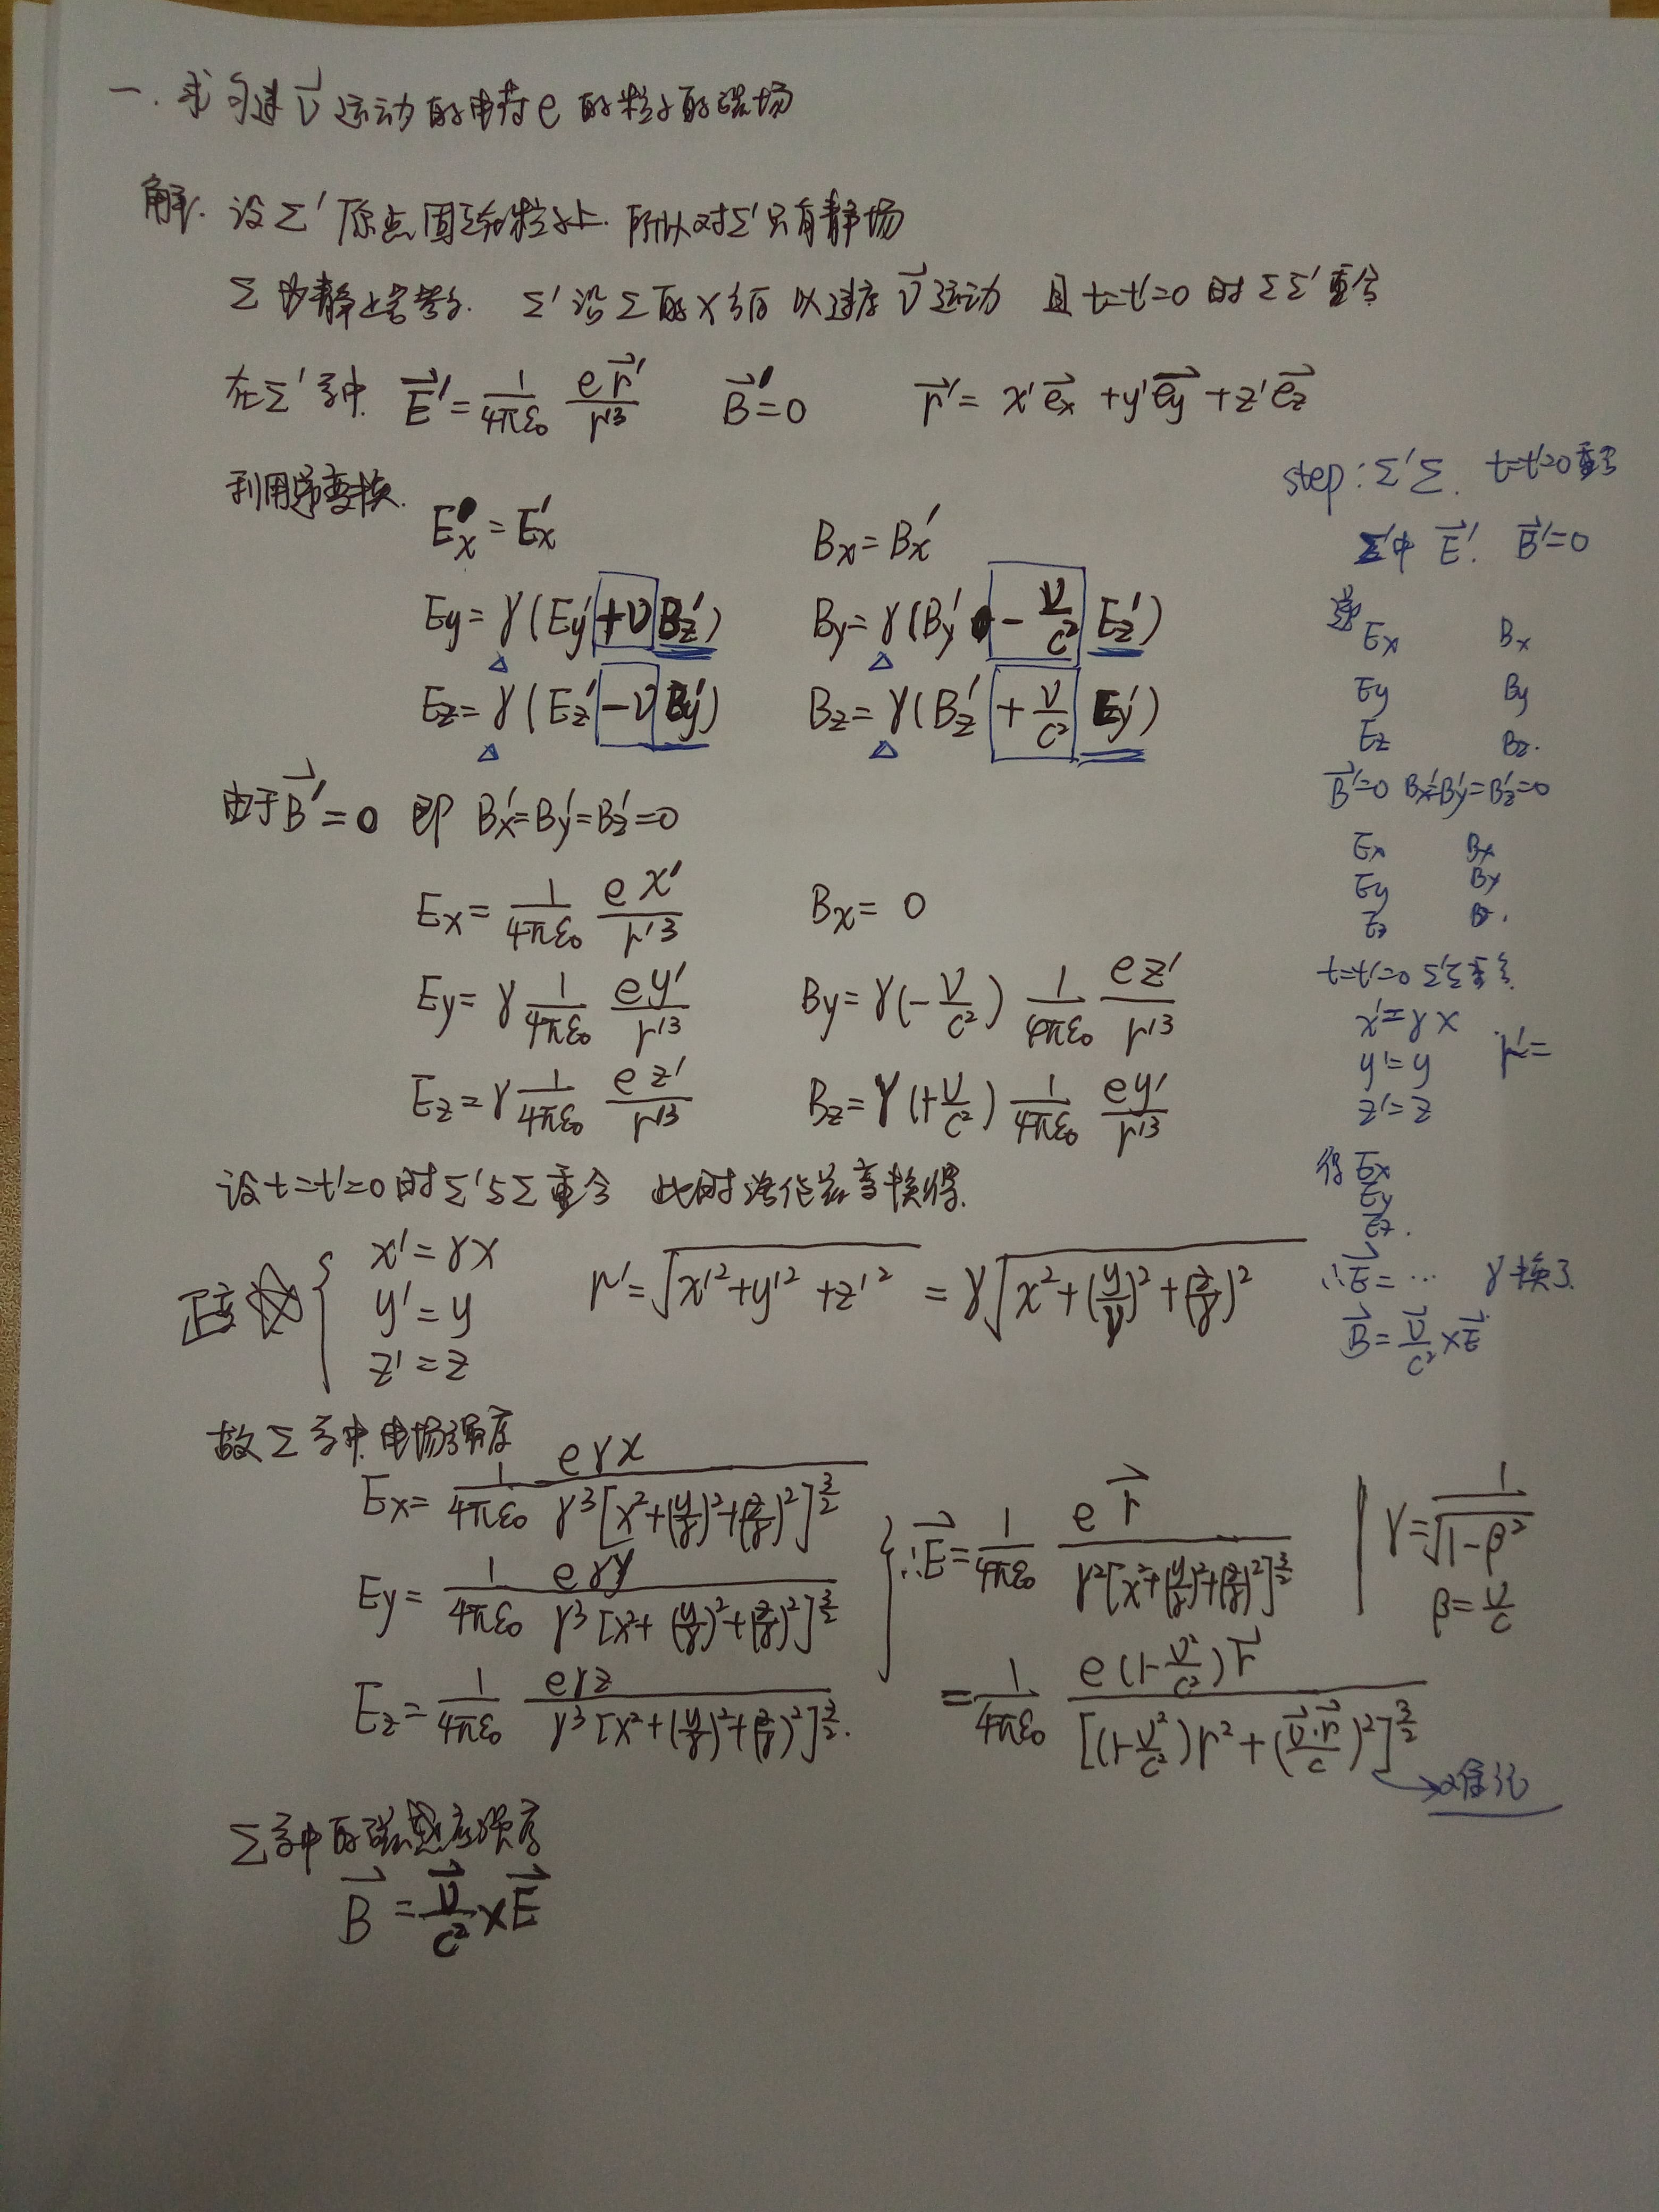 一. 求匀速 v⃗ 运动的电荷 e 的粒子的磁场
解. 设Σ′原点固连在粒子上. 所以对Σ′只有静场
Σ为静止参考系. Σ′沿Σ的X方向以速度 v⃗ 运动 且 t=t′=0 时ΣΣ′重合
在Σ′系中. E⃗′ = 1/(4πε₀) e r⃗′/r′³  B⃗′=0  r⃗′ = x′e⃗x + y′e⃗y + z′e⃗z
利用逆变换.
Ex = Ex′  Bx = Bx′
Ey = γ(Ey′ + vBz′)  By = γ(By′ − v/c² Ez′)
Ez = γ(Ez′ − vBy′)  Bz = γ(Bz′ + v/c² Ey′)
由于 B⃗′=0 即 Bx′=By′=Bz′=0
Ex = 1/(4πε₀) ex′/r′³  Bx = 0
Ey = γ 1/(4πε₀) ey′/r′³  By = γ(−v/c²) 1/(4πε₀) ez′/r′³
Ez = γ 1/(4πε₀) ez′/r′³  Bz = γ(+v/c²) 1/(4πε₀) ey′/r′³
设 t=t′=0 时Σ′与Σ重合 此时洛伦兹变换得.
x′ = γx
y′ = y
z′ = z
r′ = √(x′²+y′²+z′²) = γ√(x²+(y/γ)²+(z/γ)²)
故Σ系中.电场强度
Ex = 1/(4πε₀) eγx/(γ³[x²+(y/γ)²+(z/γ)²]^(3/2))
Ey = 1/(4πε₀) eγy/(γ³[x²+(y/γ)²+(z/γ)²]^(3/2))
Ez = 1/(4πε₀) eγz/(γ³[x²+(y/γ)²+(z/γ)²]^(3/2)).
∴E⃗ = 1/(4πε₀) e r⃗/(γ²[x²+(y/γ)²+(z/γ)²]^(3/2))
= 1/(4πε₀) e(1−v²/c²)r⃗/[(1−v²/c²)r²+(v⃗·r⃗/c)²]^(3/2)
γ = 1/√(1−β²)
β = v/c
Σ系中的磁感应强度
B⃗ = v⃗/c² × E⃗
step: Σ′Σ. t=t′=0重合
Σ′中 E⃗′. B⃗′=0
逆
Ex Bx
Ey By
Ez Bz.
B⃗′=0 Bx′=By′=Bz′=0
Ex Bx
Ey By
Ez Bz.
t=t′=0 Σ′Σ重合.
x′=γx
y′=y r′=
z′=z
得 Ex
Ey
Ez.
∴E⃗=… γ换了.
B⃗ = v⃗/c² × E⃗